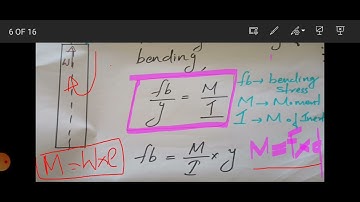 6 OF 16
W
bending
fb/y = M/I
fb → bending
stress
M → Moment
I → M of Inert
M = W×e
fb = M/I × y
M = F×d